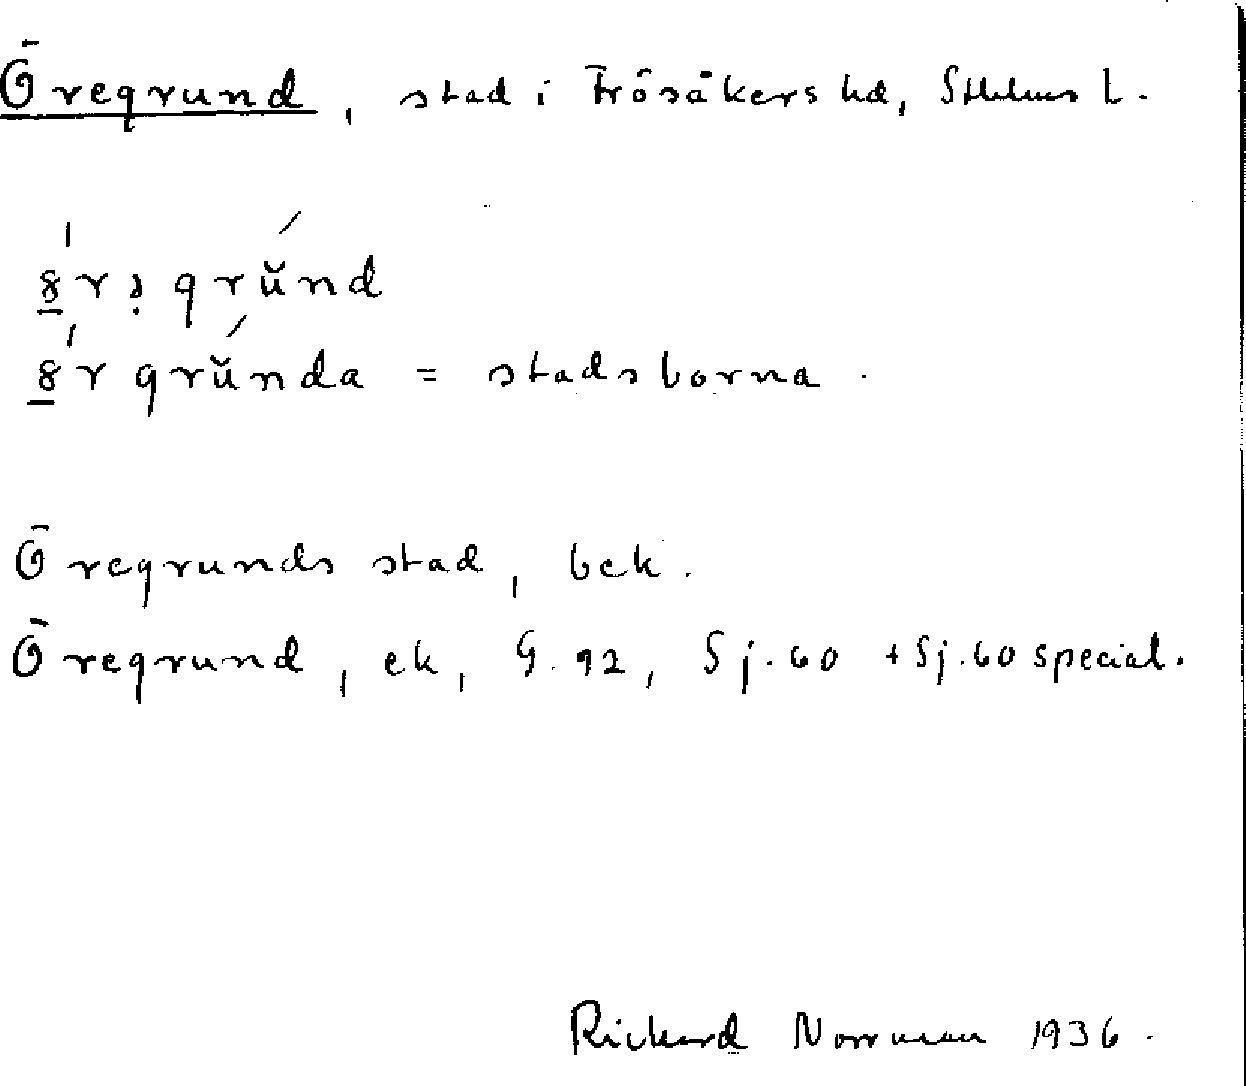 Öregrund, stad i Frösåkers hd, Sthlms l.
8̲́rə̣grŭ́nd
8̲́rgrŭ́nda = stadsborna.
Öregrunds stad, bek.
Öregrund, ek, G. 92, Sj. 60 + Sj. 60 special.
Rickard Norrman 1936.